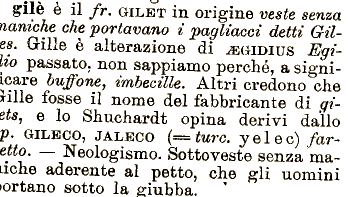 gilè è il fr. GILET in origine veste senza
maniche che portavano i pagliacci detti Gil-
es. Gille è alterazione di ÆGIDIUS Egi-
dio passato, non sappiamo perché, a signi-
icare buffone, imbecille. Altri credono che
Gille fosse il nome del fabbricante di gi-
ets, e lo Shuchardt opina derivi dallo
p. GILECO, JALECO (= turc. yelec) far-
etto. — Neologismo. Sottoveste senza ma-
niche aderente al petto, che gli uomini
portano sotto la giubba.